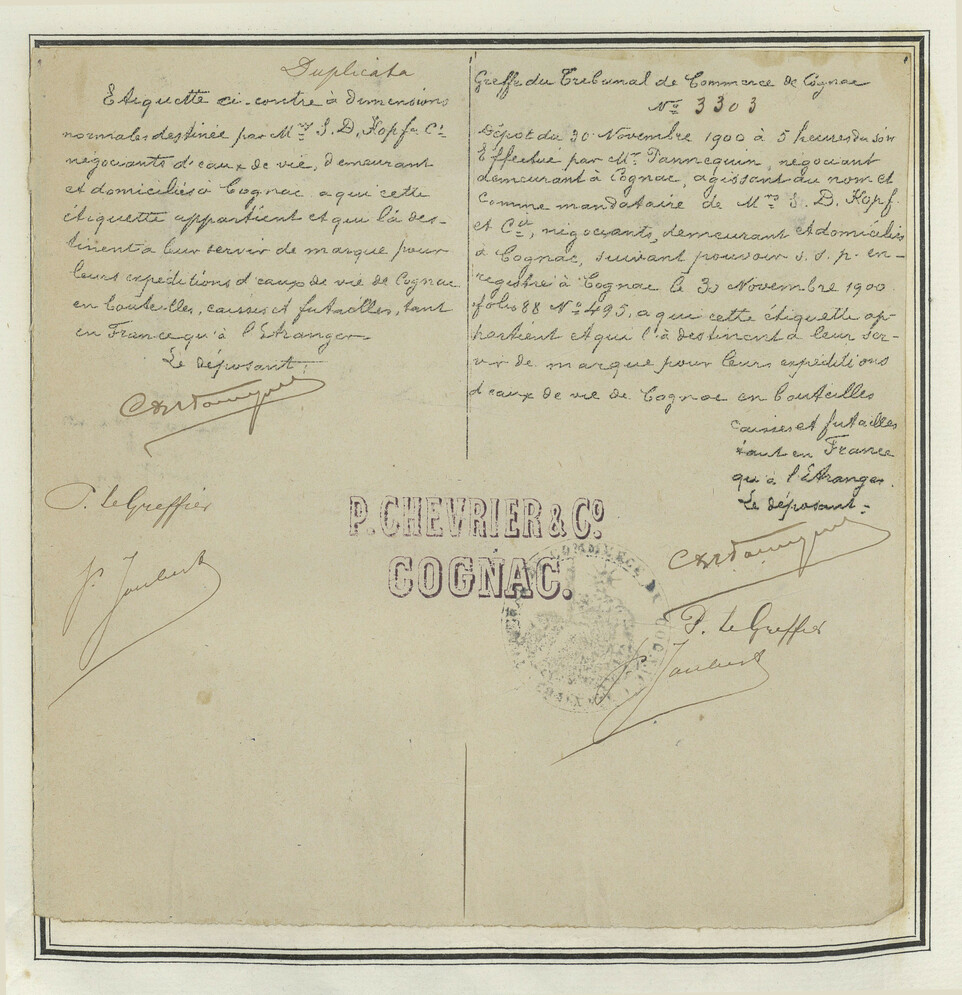 Duplicata
Etiquette ci-contre à dimensions
normales destinée par Mrs S. D. Kopf & Cie
négociants d'eaux de vie, demeurant
et domiciliés à Cognac a qui cette
étiquette appartient et qui là des-
tinent à leur servir de marque pour
leurs expéditions d'eaux de vie de Cognac
en bouteilles, caisses et futailles, tant
en France qu'à l'Etranger
Le déposant:
P. le Greffier
P. Joubert
Greffe du Tribunal de Commerce de Cognac
No 3303
Dépôt du 30 Novembre 1900 à 5 heures du soir
Effectué par Mr Tannequin, négociant
demeurant à Cognac, agissant au nom et
comme mandataire de Mrs S. D. Kopf
et Cie, négociants, demeurant et domiciliés
à Cognac, suivant pouvoir s. s. p. en-
registré à Cognac le 30 Novembre 1900
folio 88 No 495, a qui cette étiquette ap-
partient et qui l'à destinent à leur ser-
vir de marque pour leurs expéditions
d'eaux de vie de Cognac en bouteilles
caisses et futailles
tant en France
qu'à l'Etranger.
Le déposant:
P. le Greffier
P. Joubert
P. CHEVRIER & Co
COGNAC.
COMMERCE DE COGNAC